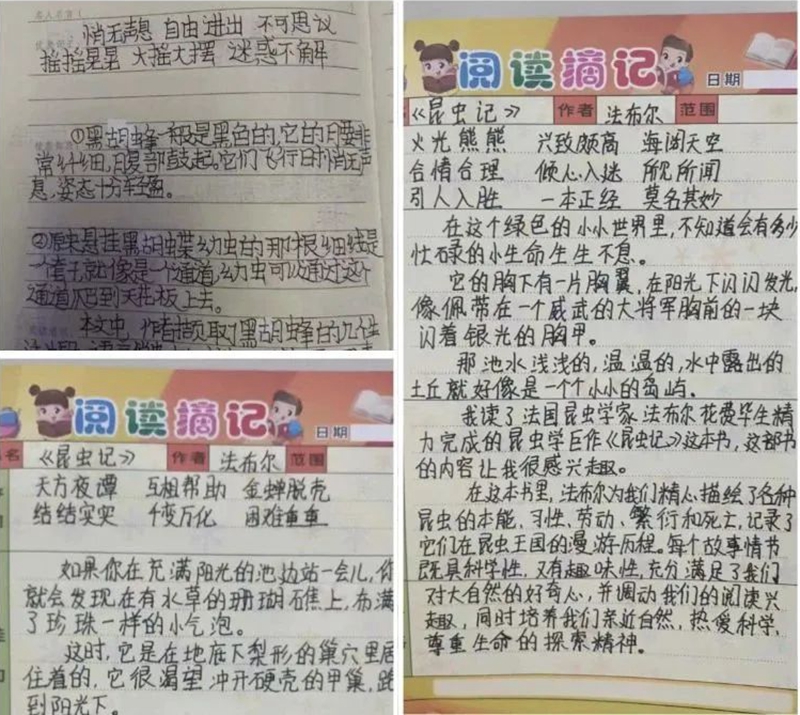 悄无声息 自由进出 不可思议
摇摇晃晃 大摇大摆 迷惑不解
①黑胡蜂一般是黑色的,它的腰非
常纤细,腹部鼓起。它们飞行时悄无声
息,姿态十分轻盈。
②原来悬挂黑胡蜂幼虫的那根细线是
一个套子,就像是一个通道,幼虫可以通过这个
通道爬到天花板上去。
本文中,作者撷取了黑胡蜂的几个生
阅读摘记
日期
《昆虫记》 作者 法布尔 范围
天方夜谭 互相帮助 金蝉脱壳
结结实实 千变万化 困难重重
如果你在充满阳光的池边站一会儿,你
就会发现在有水草的珊瑚石焦上,布满
了珍珠一样的小气泡。
这时,它是在地底下梨形的巢穴里居
住着的,它很渴望冲开硬壳的甲巢,跑
到阳光下。
阅读摘记
日期
《昆虫记》 作者 法布尔 范围
火光熊熊 兴致颇高 海阔天空
合情合理 倾心入迷 所见所闻
引人入胜 一本正经 莫名其妙
在这个绿色的小小世界里,不知道会有多少
忙碌的小生命生生不息。
它的胸下有一片胸翼,在阳光下闪闪发光,
像佩带在一个威武的大将军胸前的一块
闪着银光的胸甲。
那池水浅浅的,温温的,水中露出的
土丘就好像是一个个小小的岛屿。
我读了法国昆虫学家法布尔花费毕生精
力完成的昆虫学巨作《昆虫记》这本书,这部书
的内容让我很感兴趣。
在这本书里,法布尔为我们精心描绘了各种
昆虫的本能、习性、劳动、繁衍和死亡,记录了
它们在昆虫王国的漫游历程。每个故事情节
既具科学性,又有趣味性,充分满足了我们
对大自然的好奇心,并调动我们的阅读兴
趣,同时培养我们亲近自然,热爱科学,
尊重生命的探索精神。